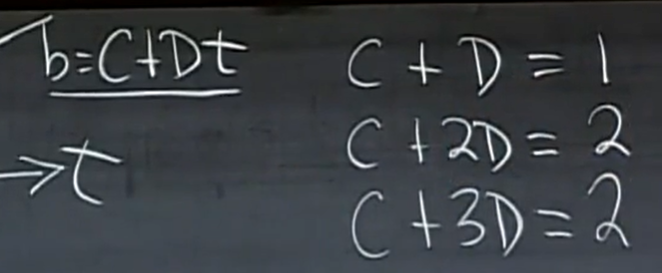 b=C+Dt
→t
C+D=1
C+2D=2
C+3D=2